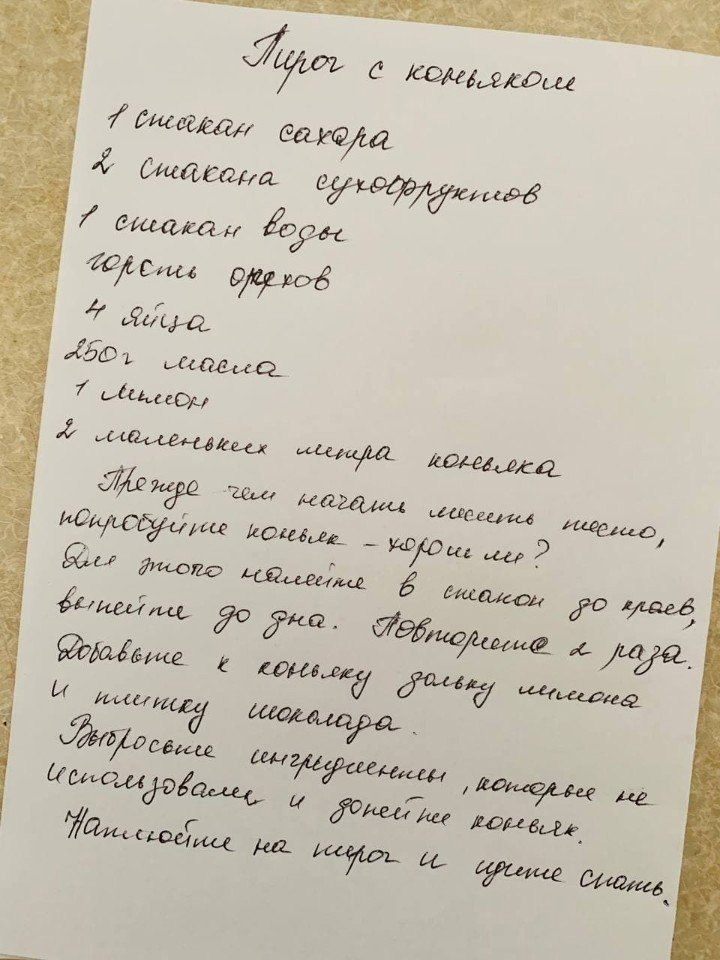 Пирог с коньяком
1 стакан сахара
2 стакана сухофруктов
1 стакан воды
горсть орехов
4 яйца
250г масла
1 лимон
2 маленьких литра коньяка
Прежде чем начать месить тесто,
попробуйте коньяк – хорош ли?
Для этого налейте в стакан до краев,
выпейте до дна. Повторите 2 раза.
Добавьте к коньяку дольку лимона
и плитку шоколада.
Выбросьте ингредиенты, которые не
использовали, и допейте коньяк.
Наплюйте на пирог и идите спать.